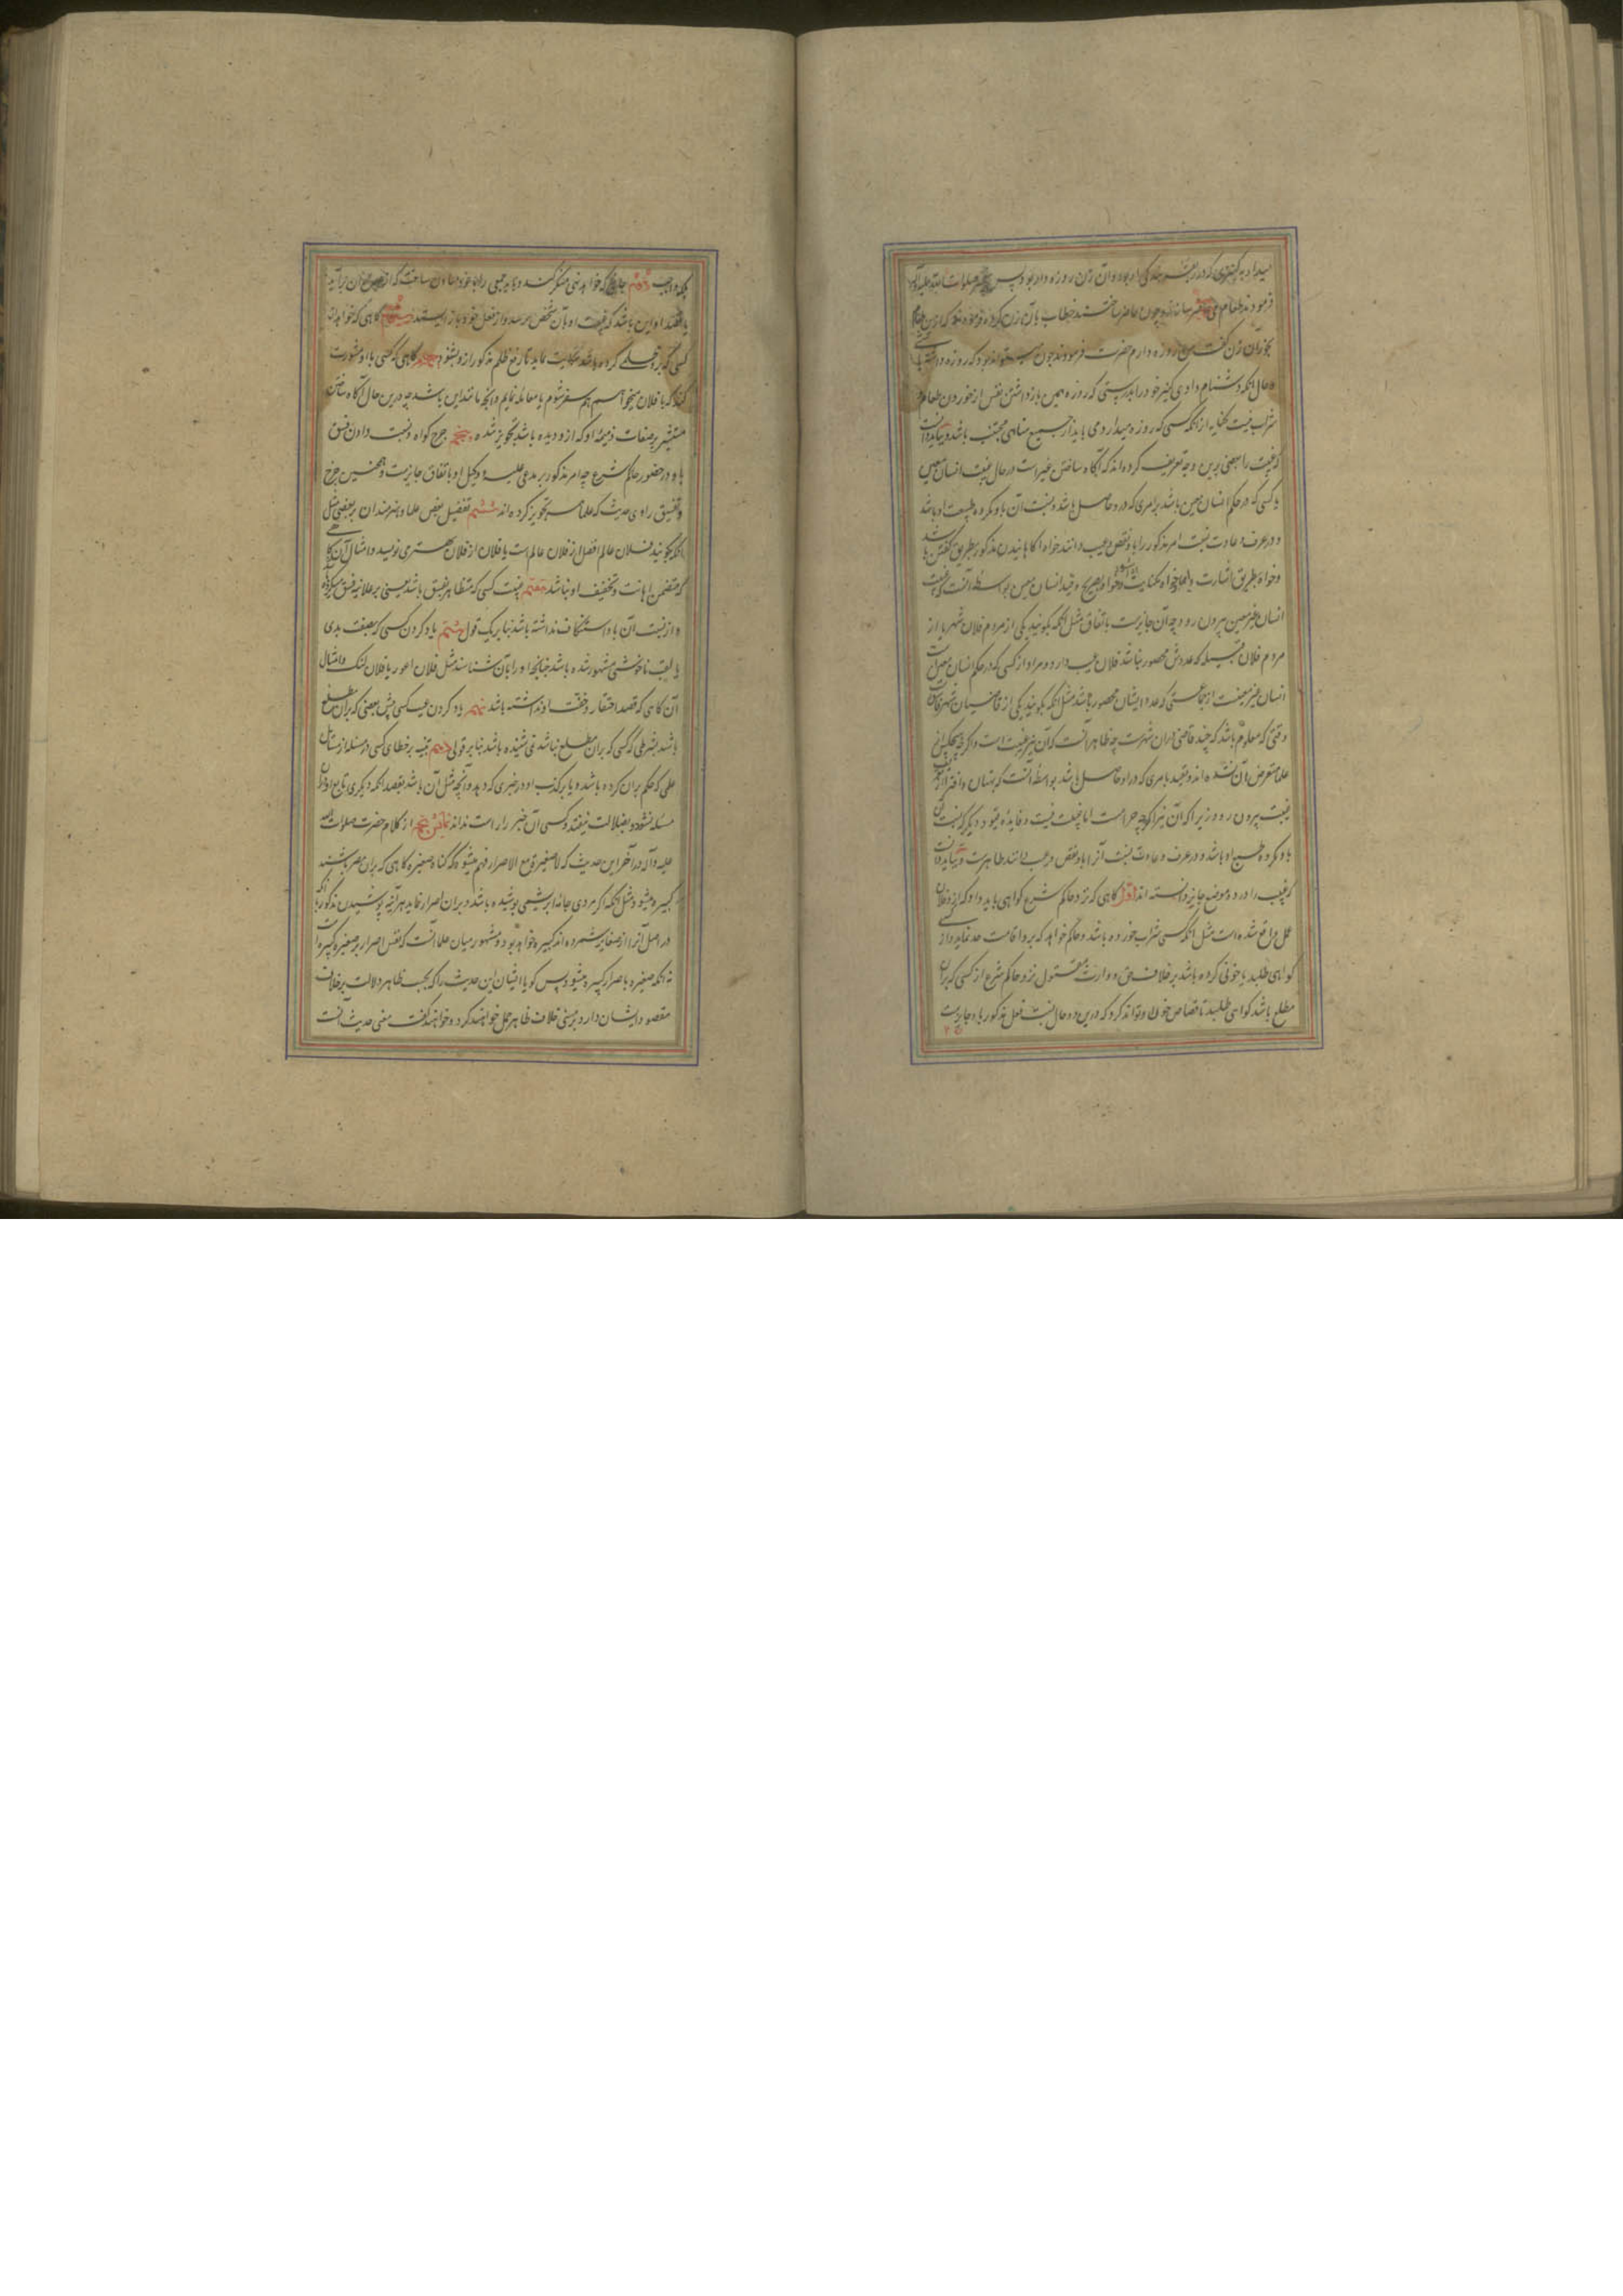 میداد به کنیزی که در بندگی او بود و آن زن روزه دار بود پس حضرت صلوات الله علیه و آله
فرمودند طعام حاضر سازند و چون حاضر ساختند خطاب بآن زن کرده فرمودند که ازین طعام
بخور آن زن گفت من روزه دارم حضرت فرمودند چون تواند بود که روزه داشته باشی
و حال آنکه دشنام دادی کنیز خود را بدرستی که روزه همین بازداشتن نفس از خوردن طعام و
شراب نیست کنایه از آنکه کسی که روزه میدارد می باید از جمیع مناهی مجتنب باشد و بباید دانست
که غیبت را بعضی برین وجه تعریف کرده اند که آگاه ساختن غیر است در حال غیبت انسان معین
یا کسی که در حکم انسان معین باشد بر امری که درو حاصل باشد و نسبت آن باو مکروه طبیعت او باشد
و در عرف و عادت نسبت امر مذکور را باو نقص و عیب دانند خواه آگاهانیدن مذکور بطریق گفتن باشد
و خواه بطریق اشارت و ایما و خواه بکنایت و خواه بصریح و قید انسان معین بواسطه آنست که غیبت
انسان غیر معین بیرون رود چه آن جایزست باتفاق مثل آنکه بگویند یکی از مردم فلان شهر یا از
مردم فلان قبیله که عددش محصور نباشد فلان عیب دارد و مراد از کسی که در حکم انسان معین است
انسان غیر معینست از جماعتی که عدد ایشان محصور باشد مثل آنکه بگویند یکی از قاضیان شهر فاسق است
وقتی که معلوم باشد که چند قاضی دران شهرست چه ظاهر آنست که آن نیز غیبت است و اگرچه هیچکس از
علما متعرض آن نشده اند و قید بامری که درو حاصل باشد بواسطه آنست که بهتان و افترا از تعریف
غیبت بیرون رود زیرا که آن نیز اگرچه حرامست اما غیبت نیست و فایده قیود دیگر که نسبت آن
باو مکروه طبع او باشد و در عرف و عادت نسبت آنرا باو نقص و عیب دانند ظاهرست و بباید دانست
که غیبت را در ده موضع جایز دانسته اند اول گاهی که نزد حاکم شرع گواهی باید داد که از فلان
عمل واقع شده است مثل آنکه کسی شراب خورده باشد و حاکم خواهد که برو اقامت حد نماید و از
گواهی طلبد یا خونی کرده باشد بر خلاف حق و وارث مقتول نزد حاکم شرع از کسی که بران
مطلع باشد گواهی طلبد تا قصاص خون تواند کرد که درین دو حال نسبت فعل مذکور باو جایزست
بلکه واجب دوم جایی که خواهد نهی منکر کند و باید جمعی را با خود معاون ساخت که از
یا قصد او این باشد که غیبت او بآن شخص برسد و از فعل خود باز ایستد سیم گاهی که خواهد از
کسی که برو ظلمی کرده باشد شکایت نماید تا رفع ظلم مذکور ازو بشود چهارم گاهی که کسی با او مشورت
کند که با فلان میخواهم همسفر شوم یا معامله نمایم و آنچه مانند این باشد چه درین حال آگاه ساختن
مستشیر بر صفات ذمیمه او که ازو دیده باشد تجویز شده پنجم جرح گواه و نسبت دادن فسق
باو در حضور حاکم شرع چه امر مذکور بر مدعی علیه و وکیل او باتفاق جایزست و همچنین جرح
و تفسیق راوی حدیث که علما تجویز کرده اند ششم تفضیل بعضی علما و هنرمندان بر بعضی مثل
آنکه بگویند فلان عالم افضل از فلان عالم است یا فلان از فلان بهتر می نویسد و امثال آن گاهی
که متضمن اهانت و تخفیف او نباشد هفتم غیبت کسی که متظاهر بفسق باشد یعنی بر علانیه فسق میکرده
و از نسبت آن باو استنکاف نداشته باشد بنا بر یک قول هشتم یاد کردن کسی که بصفت بدی
یا لقب ناخوشی مشهور شده باشد چنانچه او را بآن شناسند مثل فلان اعور یا فلان لنگ و امثال
آن گاهی که قصد احتقار و خفت او نداشته باشد نهم یاد کردن عیب کسی پیش بعضی که بران مطلع
باشد بشرطی که کسی که بران مطلع نباشد نشنیده باشد بنا بر قولی دهم تنبیه بر خطای کسی در مسئله از مسائل
علمی که حکم بران کرده باشد و یا بر کذب او در خبری که دهد و آنچه مثل آن باشد بقصد آنکه دیگری تابع او دران
مسئله نشود و بضلالت نیفتد و کسی آن خبر را راست نداند نمایش پنجم از کلام حضرت صلوات الله
علیه و آله در آخر این حدیث که لا صغیرة مع الاصرار فهم میشود که گناه صغیره گاهی که بران مصر باشند
کبیره میشود مثل آنکه اگر مردی جامه ابریشمی پوشیده باشد و بران اصرار نماید هر آینه پوشیدن مذکور با آنکه
در اصل آنرا از صغایر شمرده اند کبیره خواهد بود و مشهور میان علما آنست که نفس اصرار بر صغیره کبیره است
نه آنکه صغیره باصرار کبیره میشود پس گویا ایشان این حدیث را که بحسب ظاهر دلالت بر خلاف
مقصود ایشان دارد بر معنی خلاف ظاهر حمل خواهند کرد و خواهند گفت معنی حدیث آنست